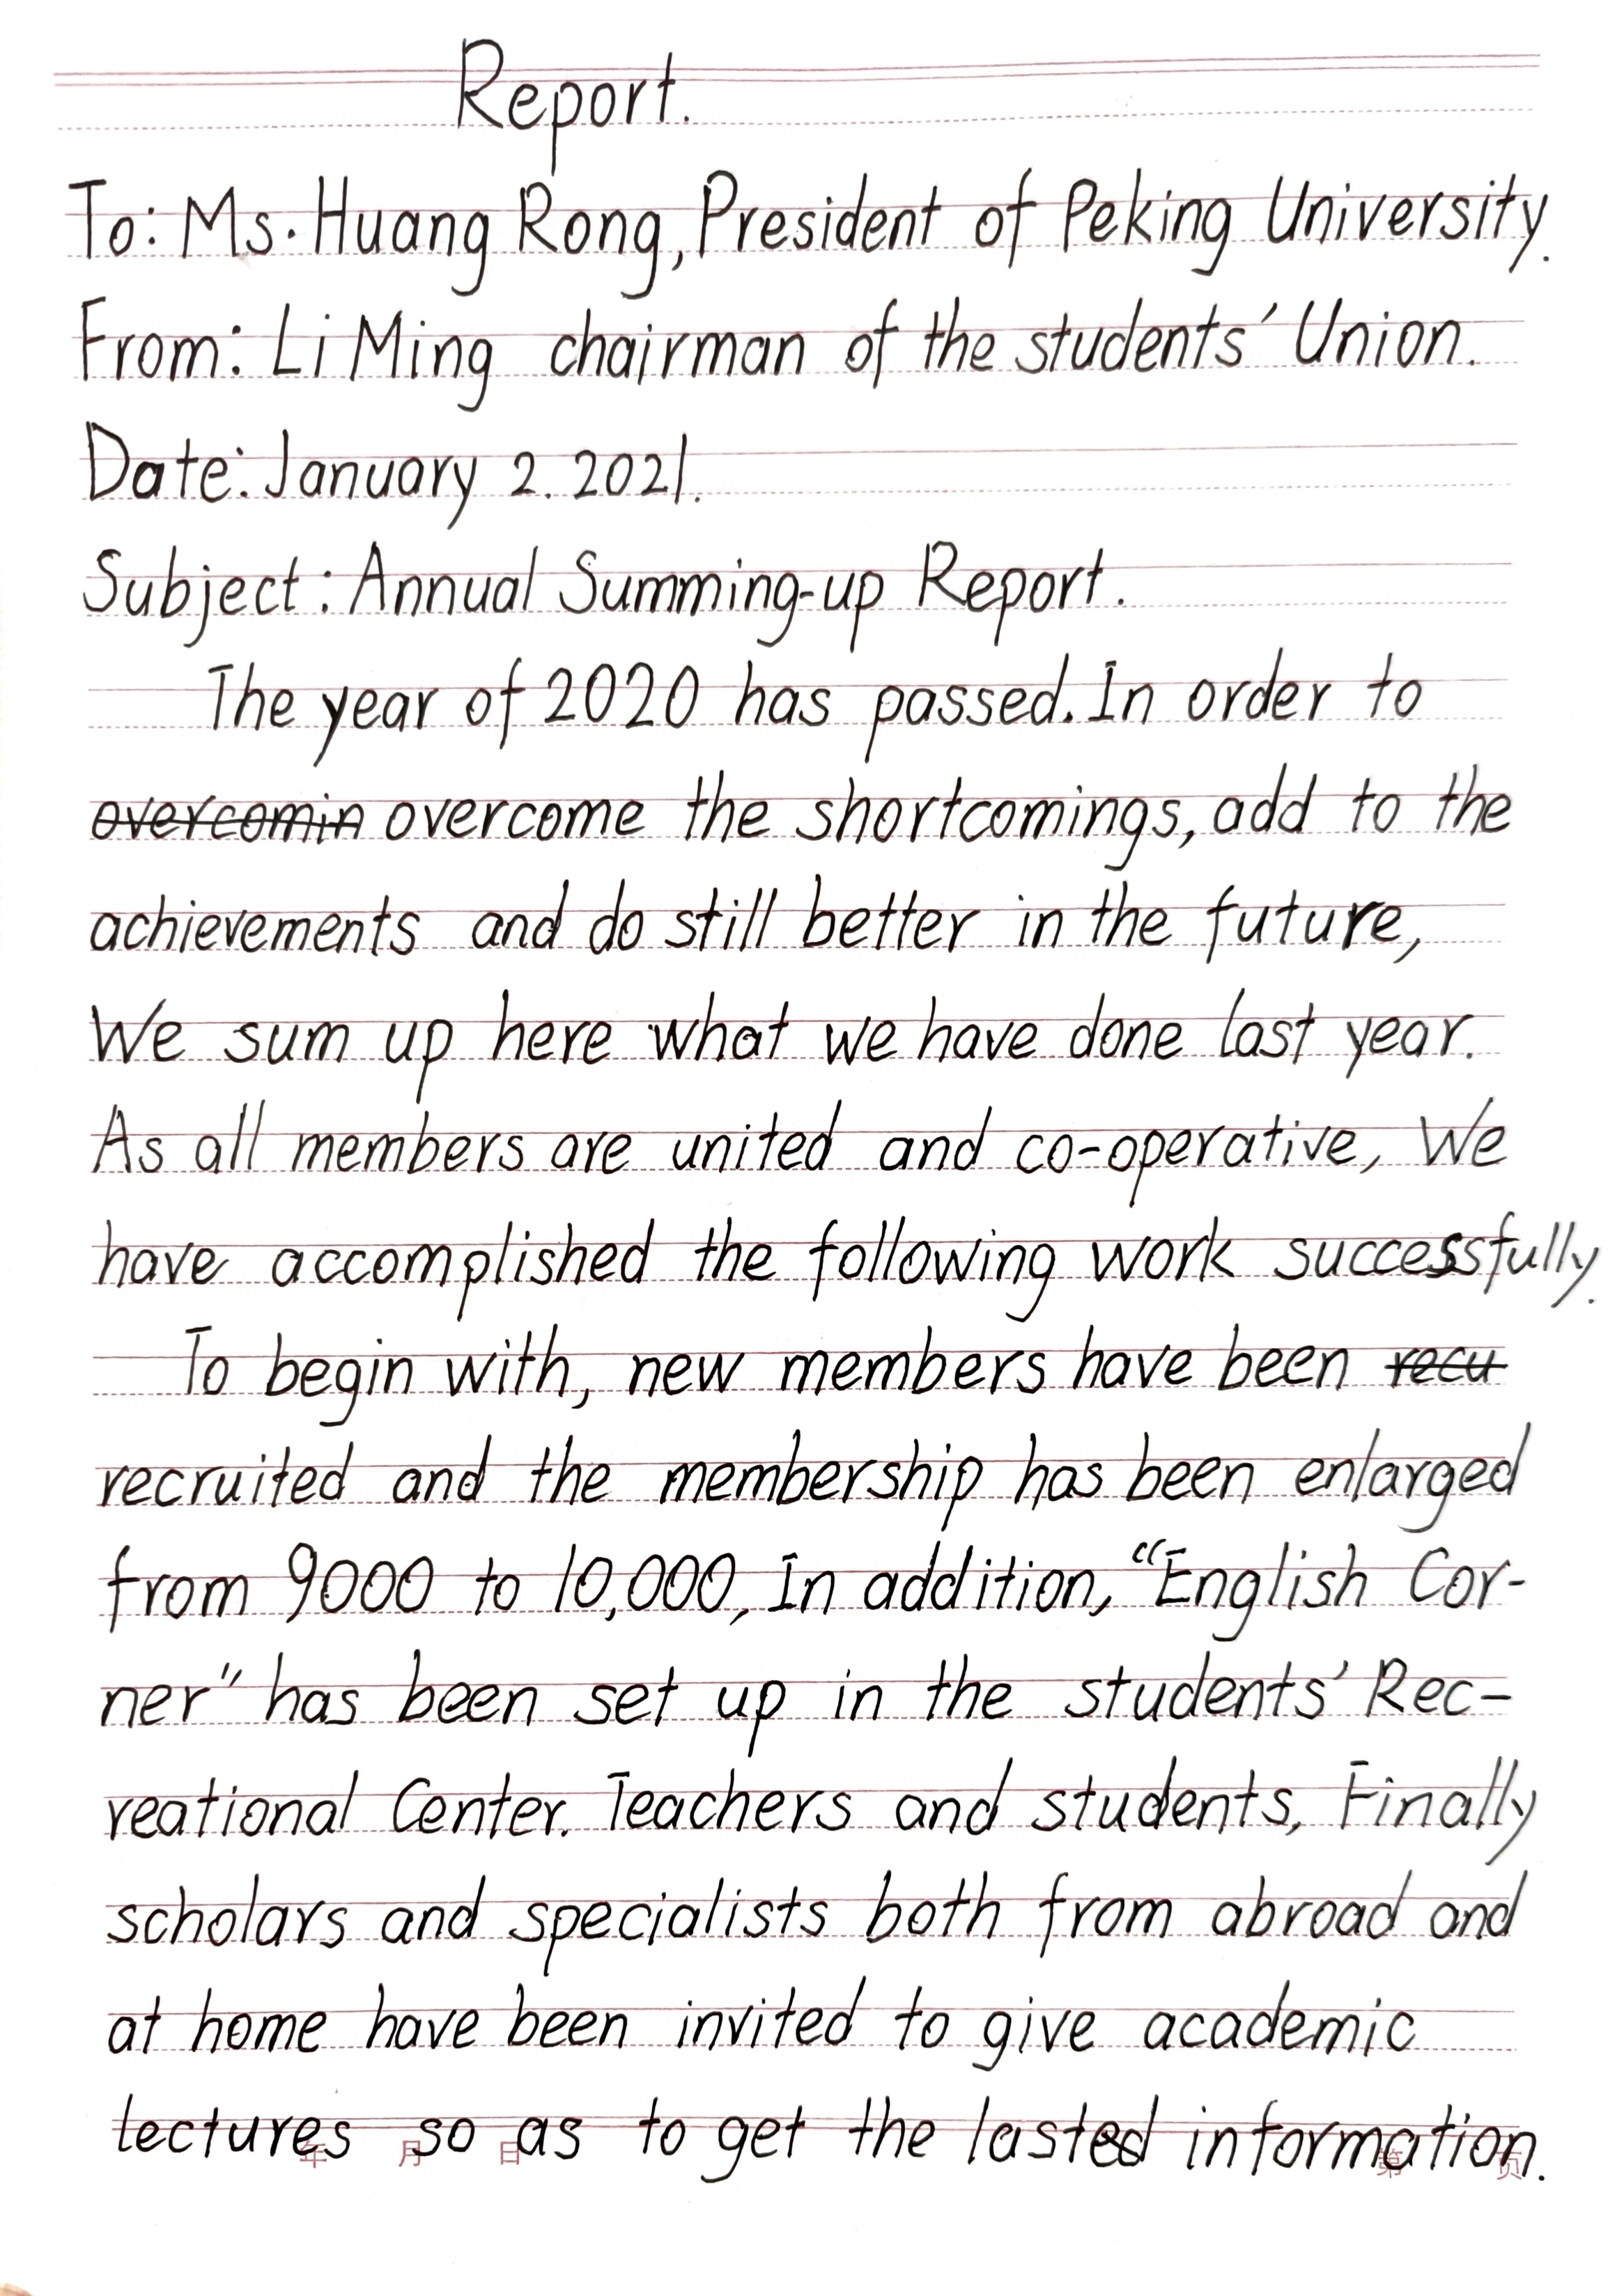 Report.
To: Ms. Huang Rong, President of Peking University.
From: Li Ming chairman of the students' Union.
Date: January 2. 2021.
Subject: Annual Summing-up Report.
The year of 2020 has passed. In order to
overcomin overcome the shortcomings, add to the
achievements and do still better in the future,
We sum up here what we have done last year.
As all members are united and co-operative, We
have accomplished the following work successfully.
To begin with, new members have been recu
recruited and the membership has been enlarged
from 9000 to 10,000, In addition, "English Cor-
ner" has been set up in the students' Rec-
reational Center. Teachers and students, Finally
scholars and specialists both from abroad and
at home have been invited to give academic
lectures so as to get the lasted information.
年 月 日 第 页